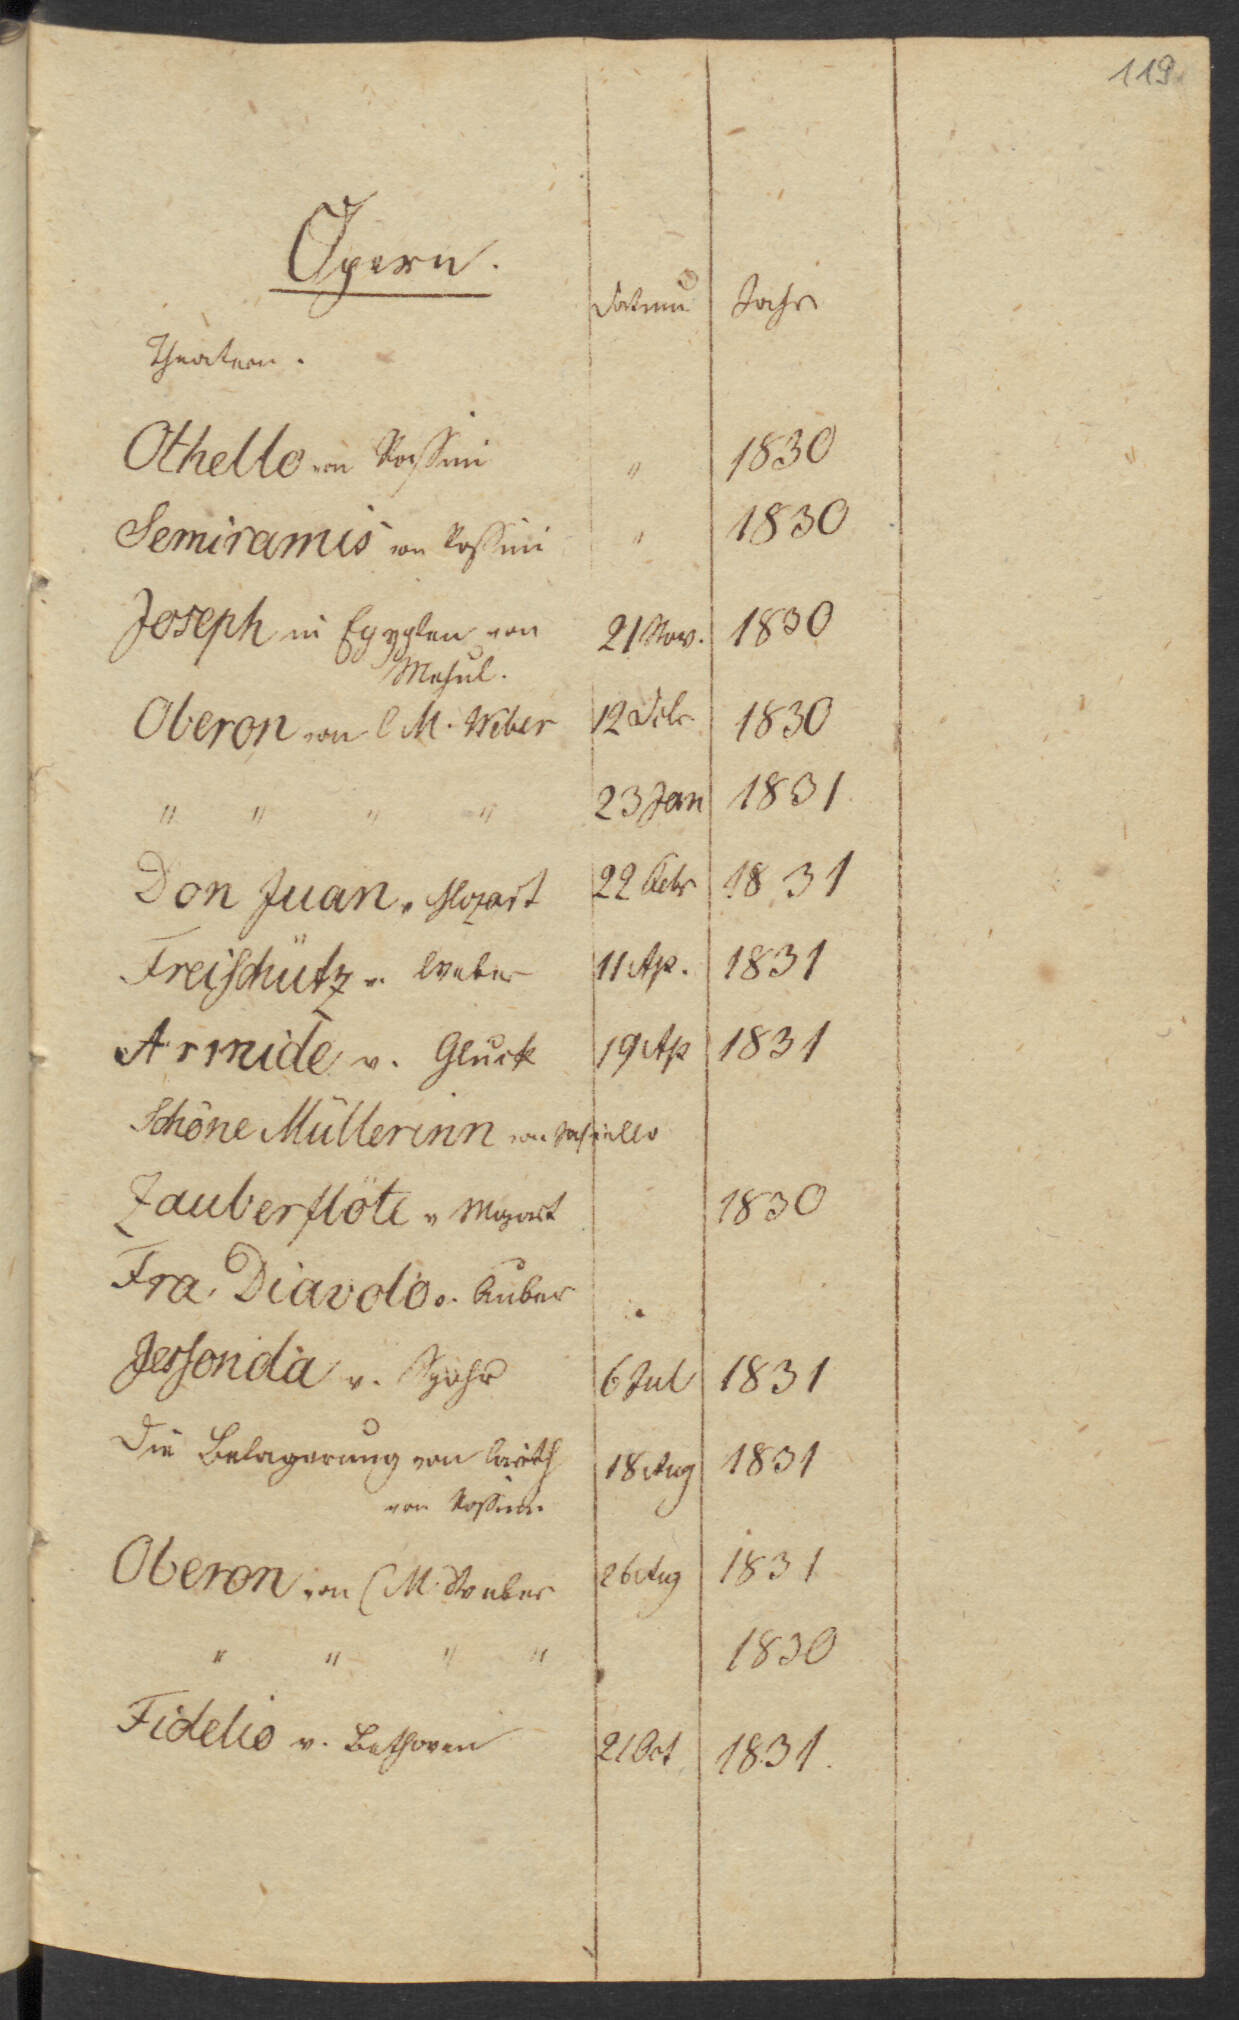 119
Opern.
Datum Jahr
Theatern.
Othello von Rossini " 1830
Semiramis von Rossini " 1830
Joseph in Egypten von 21 Nov. 1830
Mehul.
Oberon von C M. Weber 12 Dcbr 1830
" " " " 23 Jan 1831
Don Juan v. Mozart 22 Febr 1831
Freischütz v. Weber 11 Ap. 1831
Armide v. Gluck 19 Ap 1831
Schöne Müllerinn von
Zauberflöte v Mozart 1830
Fra Diavolo v. Auber
Jessonda v. Spohr 6 Jul 1831
Die Belagerung von 18 Aug 1831
von Rossini
Oberon von C M. Weber 26 Aug 1831
" " " " 1830
Fidelio v. Bethoven 21 Oct 1831.